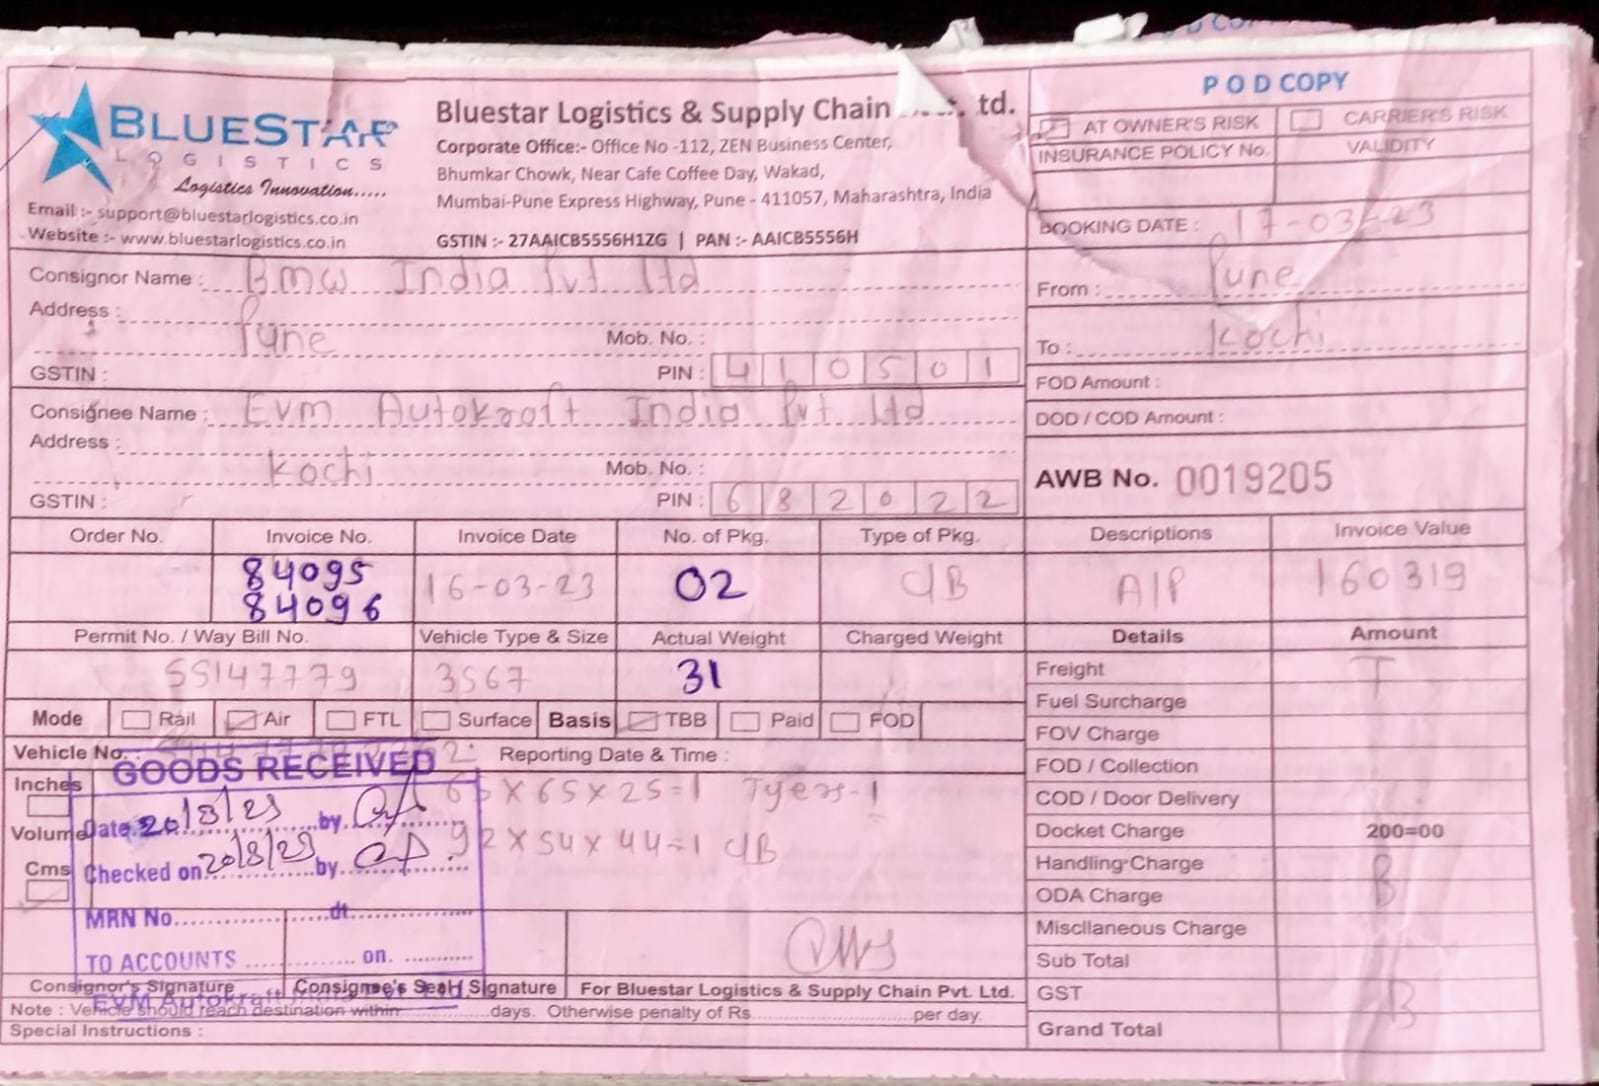 POD COPY
BLUESTAR
LOGISTICS
Logistics Innovation.....
Email :- support@bluestarlogistics.co.in
Website :- www.bluestarlogistics.co.in
Bluestar Logistics & Supply Chain td.
Corporate Office:- Office No -112, ZEN Business Center,
Bhumkar Chowk, Near Cafe Coffee Day, Wakad,
Mumbai-Pune Express Highway, Pune - 411057, Maharashtra, India
GSTIN :- 27AAICB5556H1ZG | PAN :- AAICB5556H
AT OWNER'S RISK CARRIER'S RISK
INSURANCE POLICY No. VALIDITY
BOOKING DATE : 17-03-23
Consignor Name : BMW India Pvt Ltd
Address : Pune
Mob. No. :
GSTIN : PIN : 410501
From : Pune
To : Kochi
FOD Amount :
Consignee Name : Evm Autokraft India Pvt Ltd
Address : Kochi
Mob. No. :
GSTIN : PIN : 682022
DOD / COD Amount :
AWB No. 0019205
Order No. Invoice No. Invoice Date No. of Pkg. Type of Pkg. Descriptions Invoice Value
84095 16-03-23 02 C/B A/P 160319
84096
Permit No. / Way Bill No. Vehicle Type & Size Actual Weight Charged Weight Details Amount
55147779 3567 31
Freight T
Fuel Surcharge
Mode Rail Air FTL Surface Basis TBB Paid FOD
FOV Charge
Vehicle No. : Reporting Date & Time :
FOD / Collection
GOODS RECEIVED
Inches 65 X 65 X 25 = 1 Tyers-1
COD / Door Delivery
Volume Date 20/3/23 by
Docket Charge 200=00
92 X 54 X 44 = 1 C/B
Cms Checked on 20/3/23 by
Handling Charge
ODA Charge B
MRN No. dt.
Miscllaneous Charge
TO ACCOUNTS on.
Sub Total
Consignor's Signature Consignee's Seal / Signature For Bluestar Logistics & Supply Chain Pvt. Ltd.
GST B
EVM Autokraft
Note : Vehicle should reach destination within days. Otherwise penalty of Rs. per day.
Grand Total
Special Instructions :